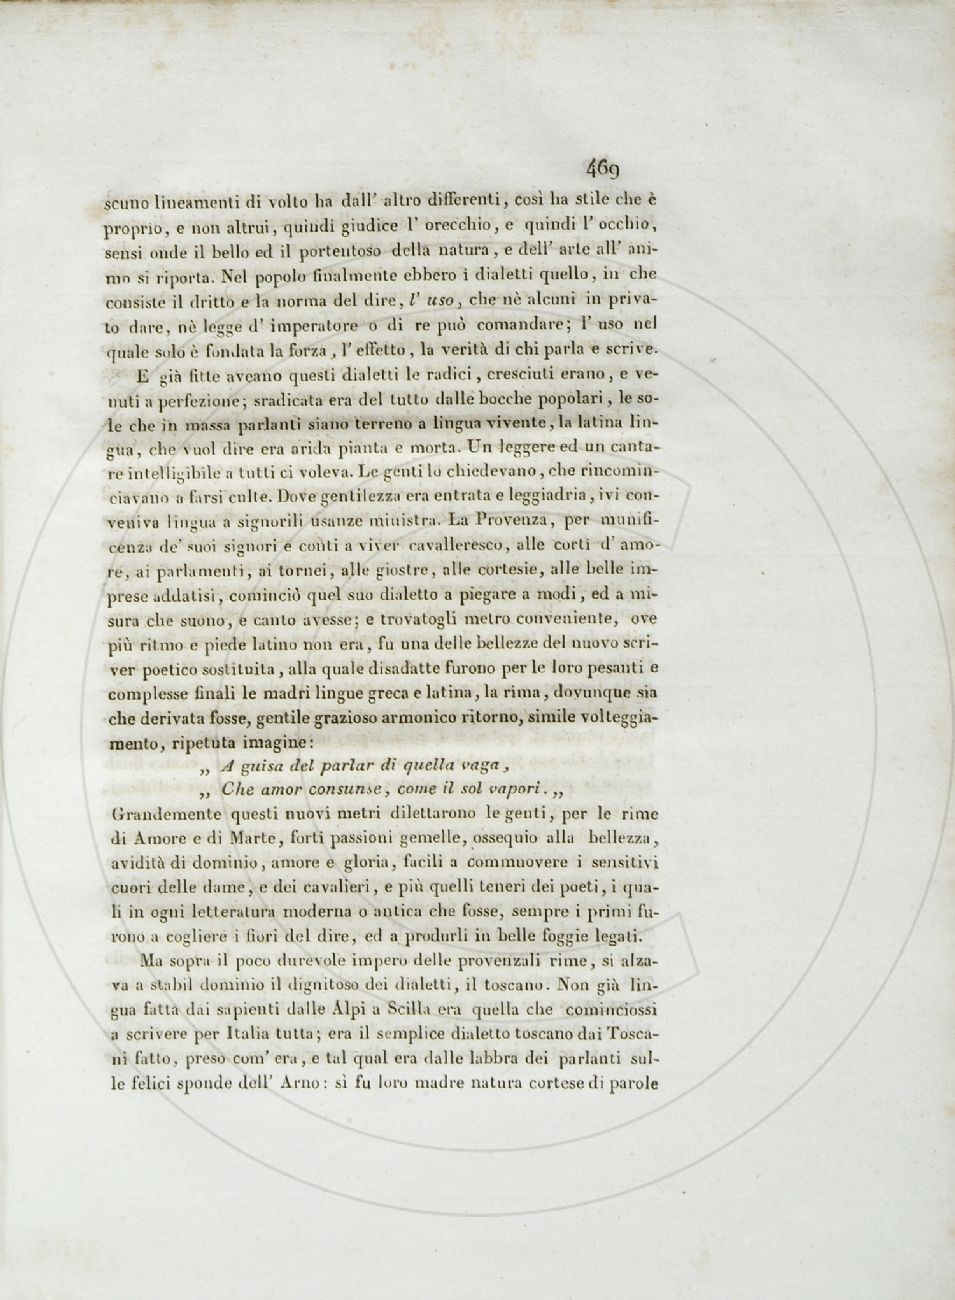 469
scuno lineamenti di volto ha dall' altro differenti, così ha stile che è
proprio, e non altrui, quindi giudice l' orecchio, e quindi l' occhio,
sensi onde il bello ed il portentoso della natura, e dell' arte all' ani-
mo si riporta. Nel popolo finalmente ebbero i dialetti quello, in che
consiste il dritto e la norma del dire, l' uso, che nè alcuni in priva-
to dare, nè legge d' imperatore o di re può comandare; l' uso nel
quale solo è fondata la forza, l' effetto, la verità di chi parla e scrive.
E già fitte aveano questi dialetti le radici, cresciuti erano, e ve-
nuti a perfezione; sradicata era del tutto dalle bocche popolari, le so-
le che in massa parlanti siano terreno a lingua vivente, la latina lin-
gua, che vuol dire era arida pianta e morta. Un leggere ed un canta-
re intelligibile a tutti ci voleva. Le genti lo chiedevano, che rincomin-
ciavano a farsi culte. Dove gentilezza era entrata e leggiadria, ivi con-
veniva lingua a signorili usanze ministra. La Provenza, per munifi-
cenza de' suoi signori e conti a viver cavalleresco, alle corti d' amo-
re, ai parlamenti, ai tornei, alle giostre, alle cortesie, alle belle im-
prese addatisi, cominciò quel suo dialetto a piegare a modi, ed a mi-
sura che suono, e canto avesse; e trovatogli metro conveniente, ove
più ritmo e piede latino non era, fu una delle bellezze del nuovo scri-
ver poetico sostituita, alla quale disadatte furono per le loro pesanti e
complesse finali le madri lingue greca e latina, la rima, dovunque sia
che derivata fosse, gentile grazioso armonico ritorno, simile volteggia-
mento, ripetuta imagine:
„ A guisa del parlar di quella vaga,
„ Che amor consunse, come il sol vapori. „
Grandemente questi nuovi metri dilettarono le genti, per le rime
di Amore e di Marte, forti passioni gemelle, ossequio alla bellezza,
avidità di dominio, amore e gloria, facili a commuovere i sensitivi
cuori delle dame, e dei cavalieri, e più quelli teneri dei poeti, i qua-
li in ogni letteratura moderna o antica che fosse, sempre i primi fu-
rono a cogliere i fiori del dire, ed a produrli in belle foggie legati.
Ma sopra il poco durevole impero delle provenzali rime, si alza-
va a stabil dominio il dignitoso dei dialetti, il toscano. Non già lin-
gua fatta dai sapienti dalle Alpi a Scilla era quella che cominciossi
a scrivere per Italia tutta; era il semplice dialetto toscano dai Tosca-
ni fatto, preso com' era, e tal qual era dalle labbra dei parlanti sul-
le felici sponde dell' Arno: sì fu loro madre natura cortese di parole